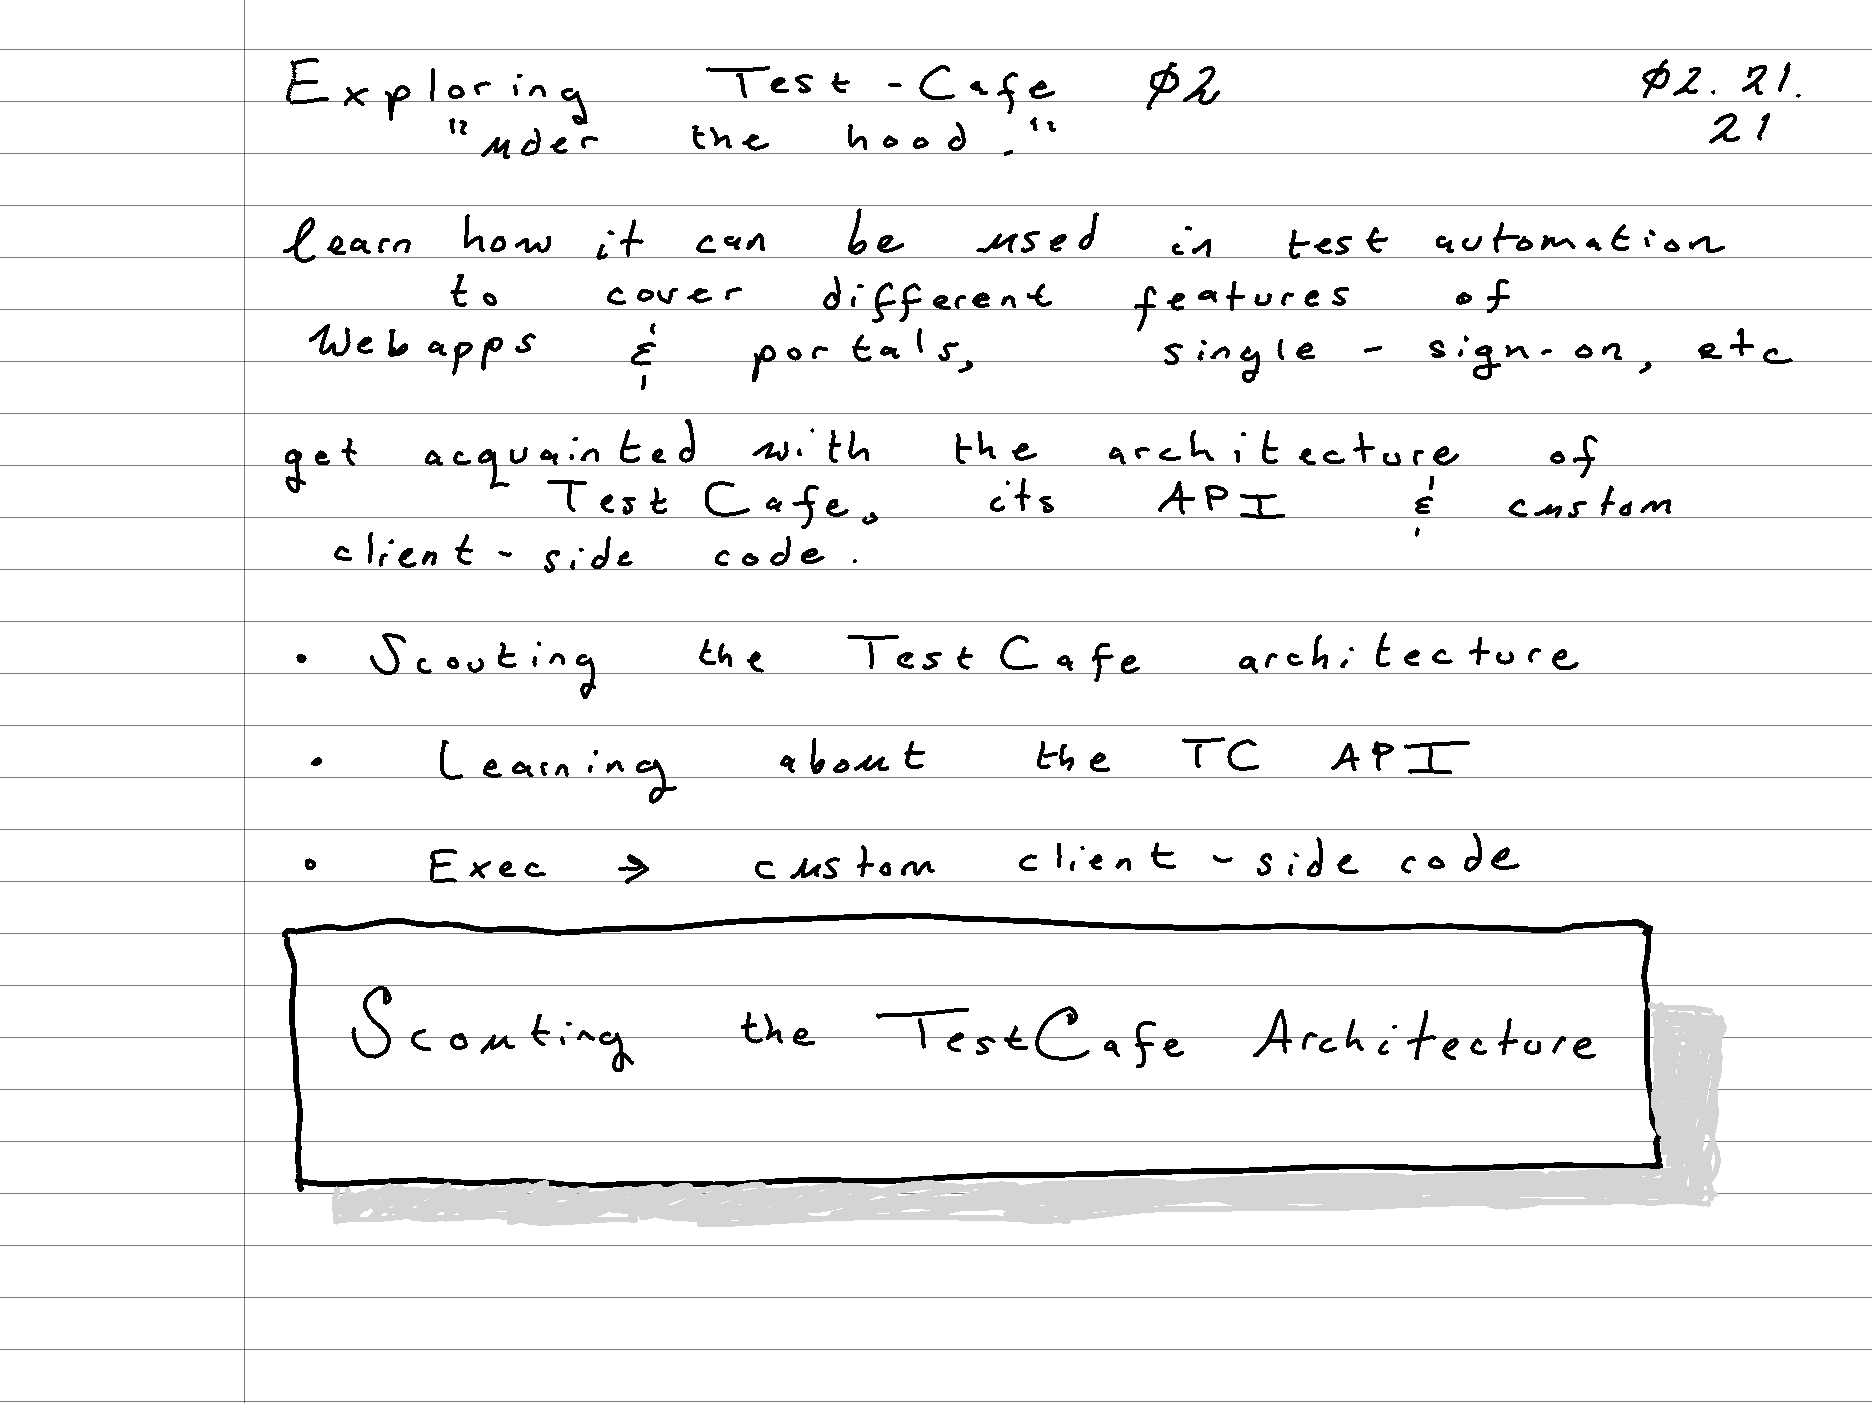 Exploring Test-Cafe 02 02.21.
"under the hood." 21
learn how it can be used in test automation
to cover different features of
Webapps & portals, single-sign-on, etc
get acquainted with the architecture of
TestCafe, its API & custom
client-side code.
• Scouting the TestCafe architecture
• Learning about the TC API
• Exec → custom client-side code
Scouting the TestCafe Architecture